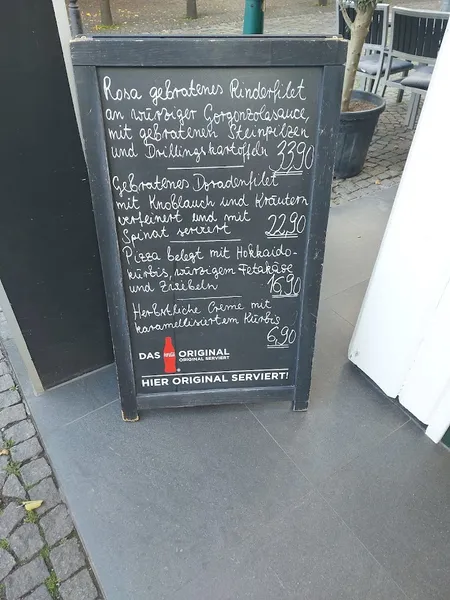 Rosa gebratenes Rinderfilet
an würziger Gorgonzolasauce,
mit gebratenen Steinpilzen
und Drillingskartoffeln 33,90
Gebratenes Doradenfilet
mit Knoblauch und Kräutern
verfeinert und mit
Spinat serviert 22,90
Pizza belegt mit Hokkaido-
kürbis, würzigem Fetakäse
und Zwiebeln 16,90
Herbstliche Creme mit
karamellisiertem Kürbis
6,90
DAS ORIGINAL
ORIGINAL SERVIERT
HIER ORIGINAL SERVIERT!